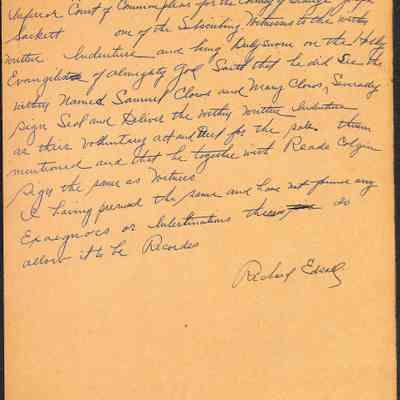 Inferior Court of Common pleas for the County of Orange Joseph
Sackett one of the Subscribing Witnesses to the withy
written Indenture and being Duly Sworn on the Holy
Evangelists of almighty God Saith that he did See the
withy Named Samuel Clows and Mary Clows, Severaly
sign Seal and Deliver the withy written Indenture
as their Voluntary act and Deed for the
mentioned and that he together with Reade
Sign the same as Witness
I having perused the same and have not any
or Interlineations do
allow it to be Recorded
Richard